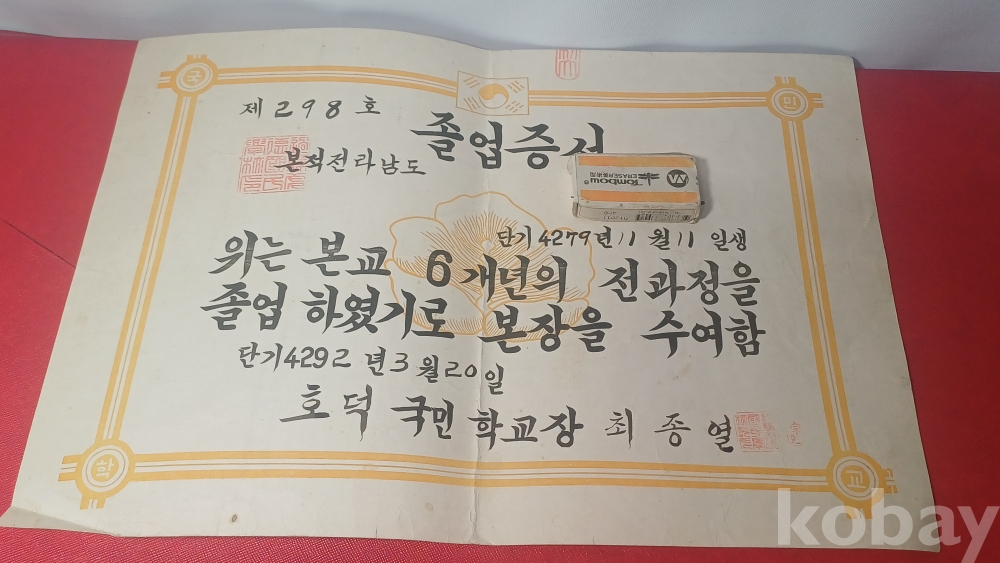 국 민
제 298 호
졸업증서
본적전라남도
Tombow
ERASER
단기4279년11월11일생
위는 본교 6개년의 전과정을
졸업 하였기로 본장을 수여함
단기4292년3월20일
호덕 국민학교장 최종열
학 교
kobay